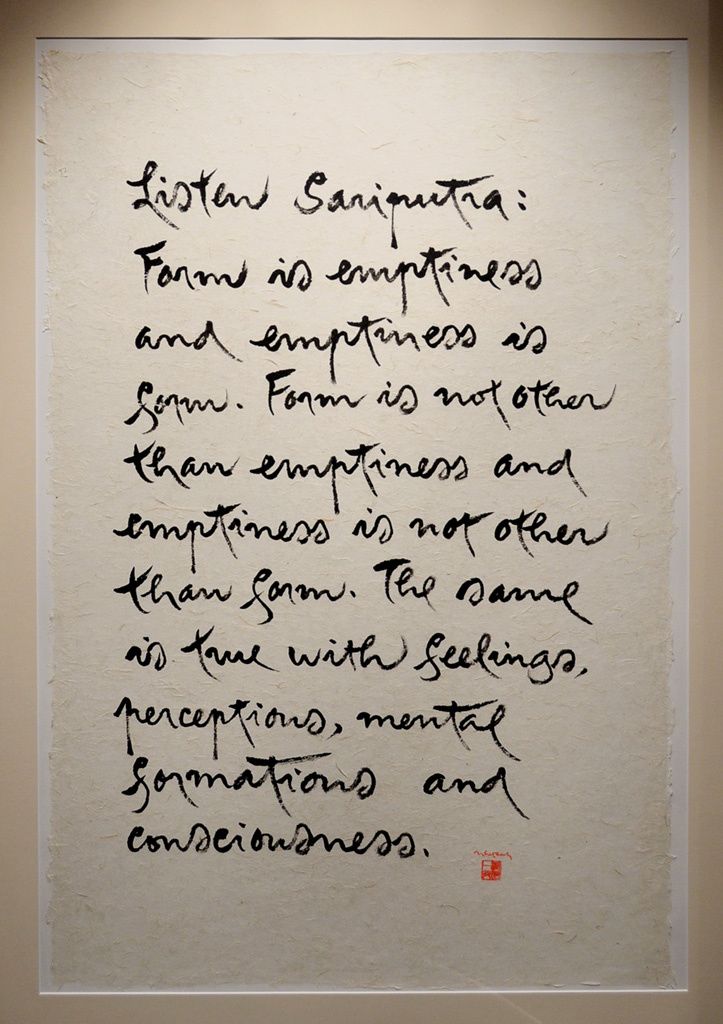 Listen Sariputra:
Form is emptiness
and emptiness is
form. Form is not other
than emptiness and
emptiness is not other
than form. The same
is true with feelings,
perceptions, mental
formations and
consciousness.